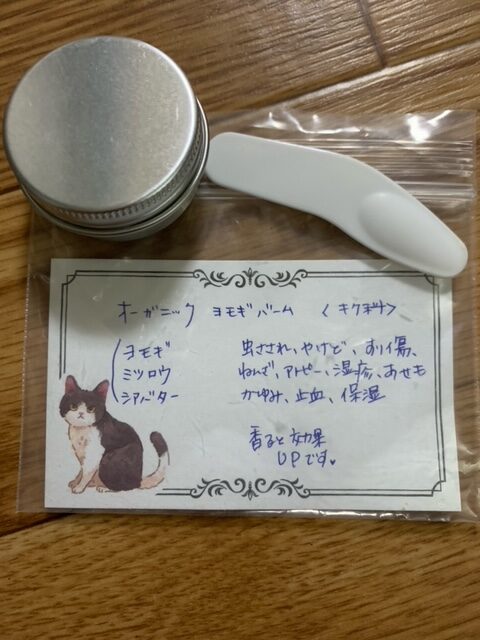 オーガニック ヨモギバーム 〈キク科〉
ヨモギ
ミツロウ
シアバター
虫さされ、やけど、すり傷、
ねんざ、アトピー、湿疹、あせも
かゆみ、止血、保湿
香ると効果
UPです。